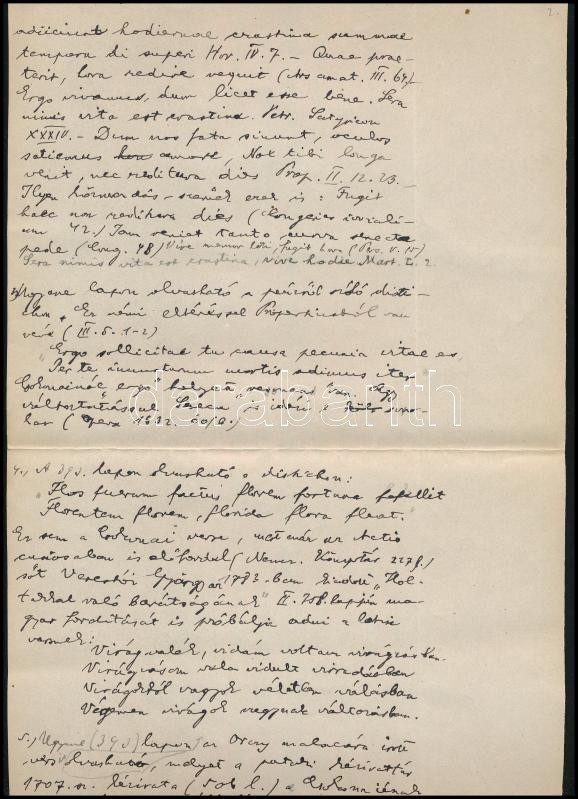 2.
adiiciant hodiernae crastina summae
tempora di superi Hor. IV. 7. – Quae prae-
teriit, hora redire nequit (Ars amat. III. 64)
Ergo vivamus, dum licet esse bene. Sera
nimis vita est crastina. Petr. Satyricon
XXXIV. – Dum nos fata sinunt, oculos
satiemus amore, Nox tibi longa
venit, nec reditura dies Prop. II. 12. 23. –
Ilyen közmondás-szerűek ezek is: Fugit
haec non reditura dies (
42.) Jam veniet tanto curva senecta
pede (Cong. 48) Vive memor leti, fugit hora (Pers. V. 15)
Sera nimis vita est crastina, vive hodie Mart. I. 2.
Ugyane lapon olvasható a pénzről szóló disti-
chon. Ez némi eltéréssel Propertiusból van
véve (III. 5. 1-2)
"Ergo sollicitae tu causa pecunia vitae es,
Per te immaturum mortis adimus iter
Csokonainál ergo helyett
változtatással Seneca is idézi
(Opera 1632.
darabanth
4., A 390. lapon olvasható a distichon:
Flos fueram factus florem fortuna fefellit
Florentem florem, florida flora fleat."
Ez sem a Csokonai verse, mert már az Actio
curiosaban is előfordul (Nemz. Könyvtár 227 l.)
sőt Vereskői György az 1783-ban kiadott "Hol-
takkal való barátságának" II. 208. lapján ma-
gyar fordítását is próbálja adni a latin
versnek:
Virág valék, vidám voltam virágzásban.
Virágvásom vala vidult virradásban
Virágokból vagyok véletlen válásban
Végemen virágok vagynak változásban.
5.) Ugyane (390) lapon az Orczy malacára írott
vers olvasható, melyet a pataki kézirattár
1707. n. kézirata (506 l.) a Csokonaiénak